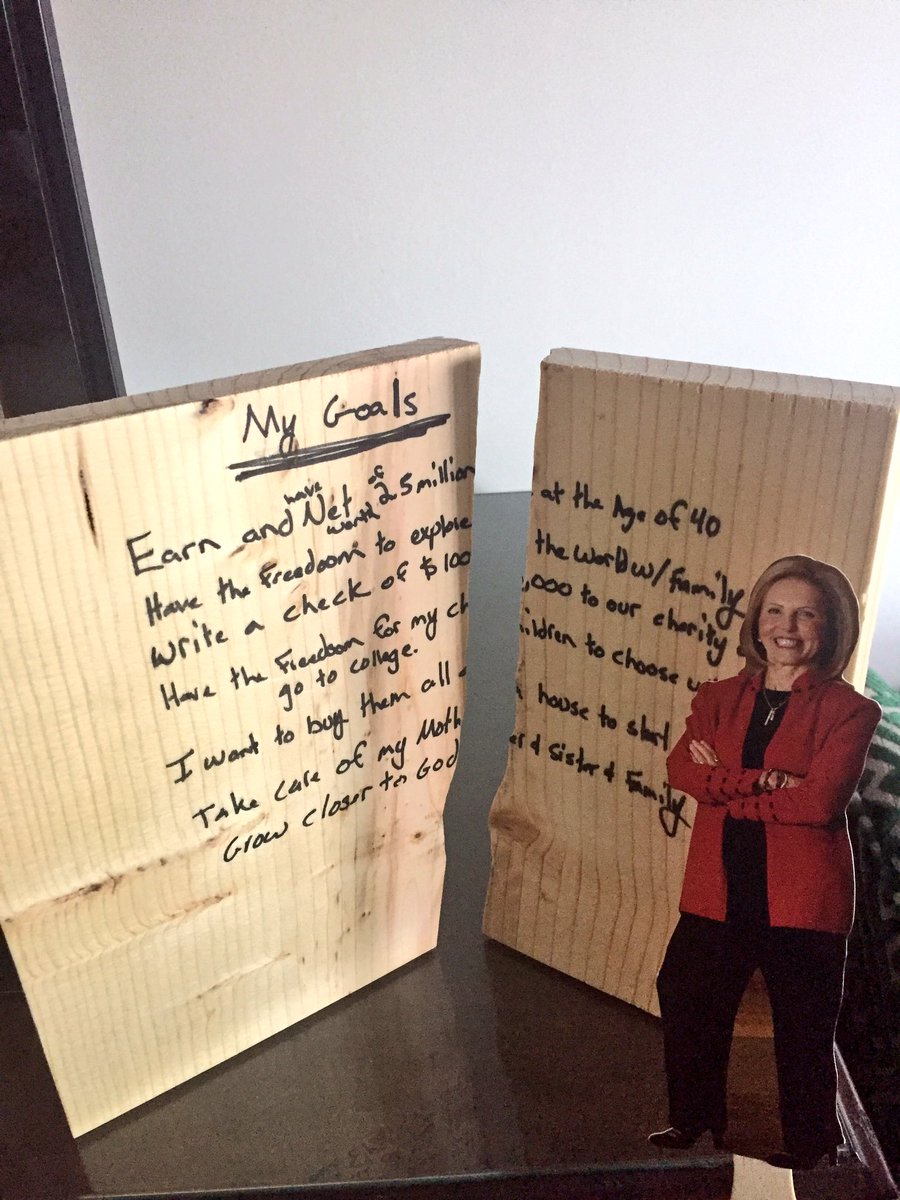 My Goals
Earn and have Net worth of 2.5 million at the Age of 40
Have the Freedom to explore the world w/ Family
write a check of $100,000 to our charity
Have the Freedom for my children to choose
go to college.
I want to buy them all a house to start
Take care of my Mother & Sister & Family
Grow closer to God